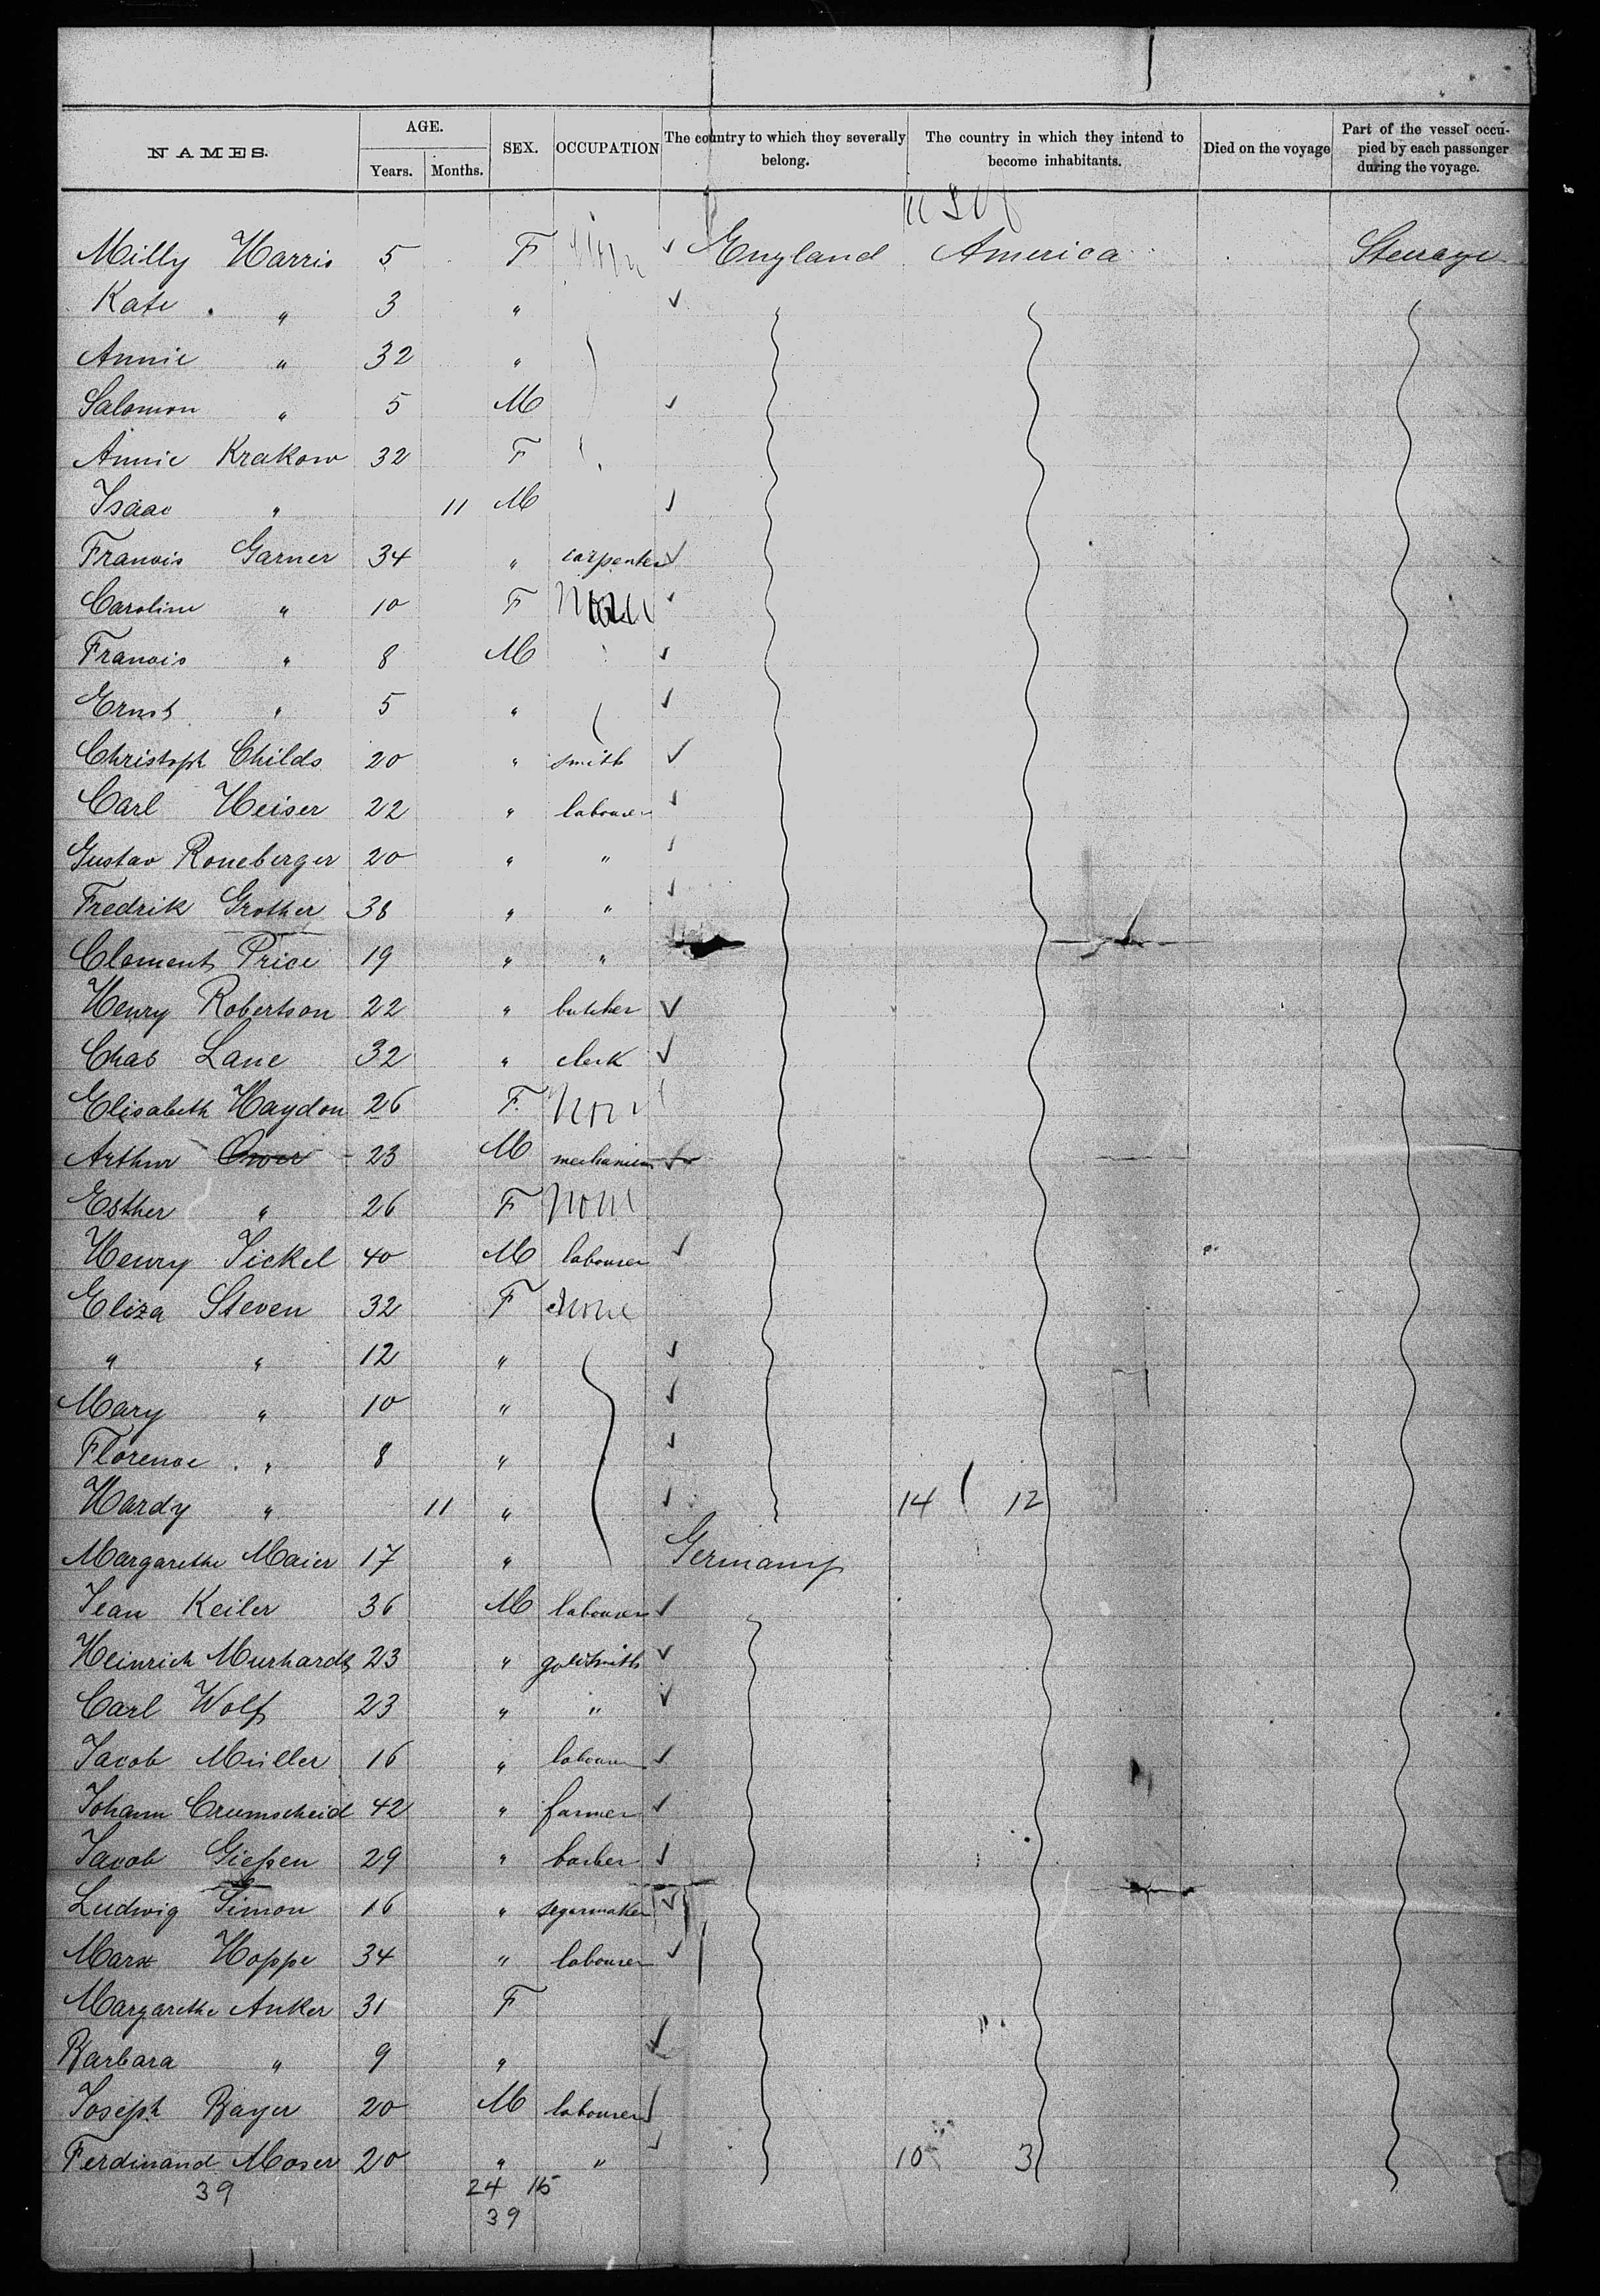 NAMES. AGE. Years. Months. SEX. OCCUPATION The country to which they severally belong. The country in which they intend to become inhabitants. Died on the voyage Part of the vessel occupied by each passenger during the voyage.
Milly Harris 5 F England America Steerage
Kate " 3 "
Annie " 32 "
Salomon " 5 M
Annie Krakow 32 F
Isaac " 11 M
Francis Garner 34 " carpenter
Caroline " 10 F None
Francis " 8 M
Ernst " 5 "
Christoph Childs 20 " smith
Carl Heiser 22 " labourer
Gustav Roneberger 20 " "
Fredrik Grother 38 " "
Clement Price 19 " "
Henry Robertson 22 " butcher
Chas Lane 32 " clerk
Elisabeth Haydon 26 F. None
Arthur 23 M mechanician
Esther " 26 F None
Henry Sickel 40 M labourer
Eliza Steven 32 F None
" " 12 "
Mary " 10 "
Florence " 8 "
Hardy " 11 " 14 12
Margarethe Maier 17 " Germany
Jean Keiler 36 M labourer
Heinrich Murhardt 23 " goldsmith
Carl Wolf 23 " "
Jacob Müller 16 " labourer
Johann Crumscheid 42 " farmer
Jacob Gießen 29 " barber
Ludwig Simon 16 " segarmaker
Marx Hoppe 34 " labourer
Margarethe Anker 31 F
Barbara " 9 "
Joseph Bayer 20 M labourer
Ferdinand Moser 20 " " 10 3
39 24 15
39